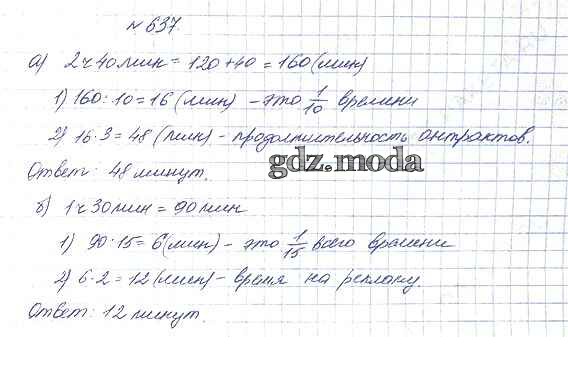 № 637.
а) 2 ч 40 мин = 120 + 40 = 160 (мин)
1) 160 : 10 = 16 (мин) – это 1/10 времени
2) 16 · 3 = 48 (мин) – продолжительность антрактов.
gdz.moda
Ответ: 48 минут.
б) 1 ч 30 мин = 90 мин
1) 90 : 15 = 6 (мин) – это 1/15 всего времени
2) 6 · 2 = 12 (мин) – время на рекламу.
Ответ: 12 минут.